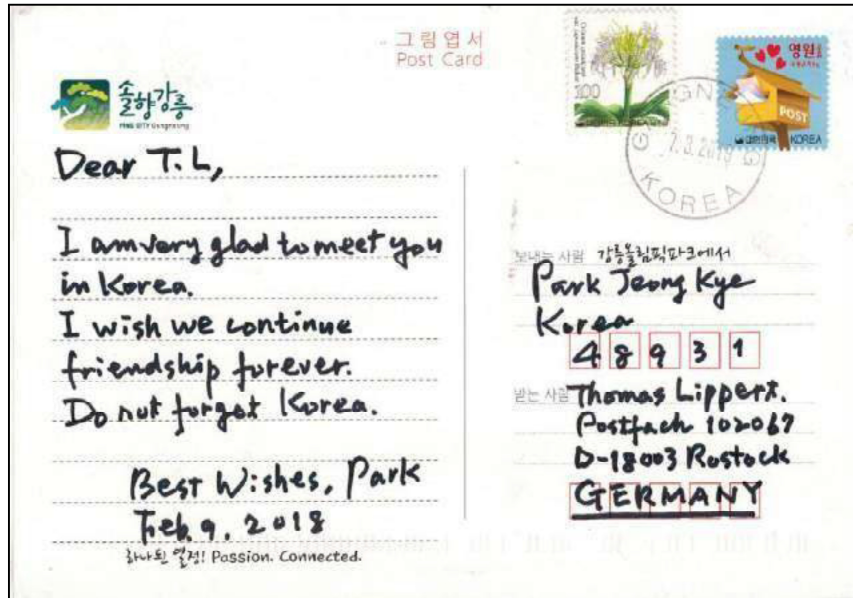 그림엽서
Post Card
솔향강릉
PINE CITY Gangneung
100
영원
POST
대한민국 KOREA
KOREA
Dear T.L,
I am very glad to meet you
in Korea.
I wish we continue
friendship forever.
Do not forget Korea.
Best Wishes, Park
Feb. 9. 2018
하나된 열정! Passion. Connected.
보내는 사람 강릉올림픽파크에서
Park Jeong Kye
Korea
48931
받는 사람 Thomas Lippert.
Postfach 102067
D-18003 Rostock
GERMANY